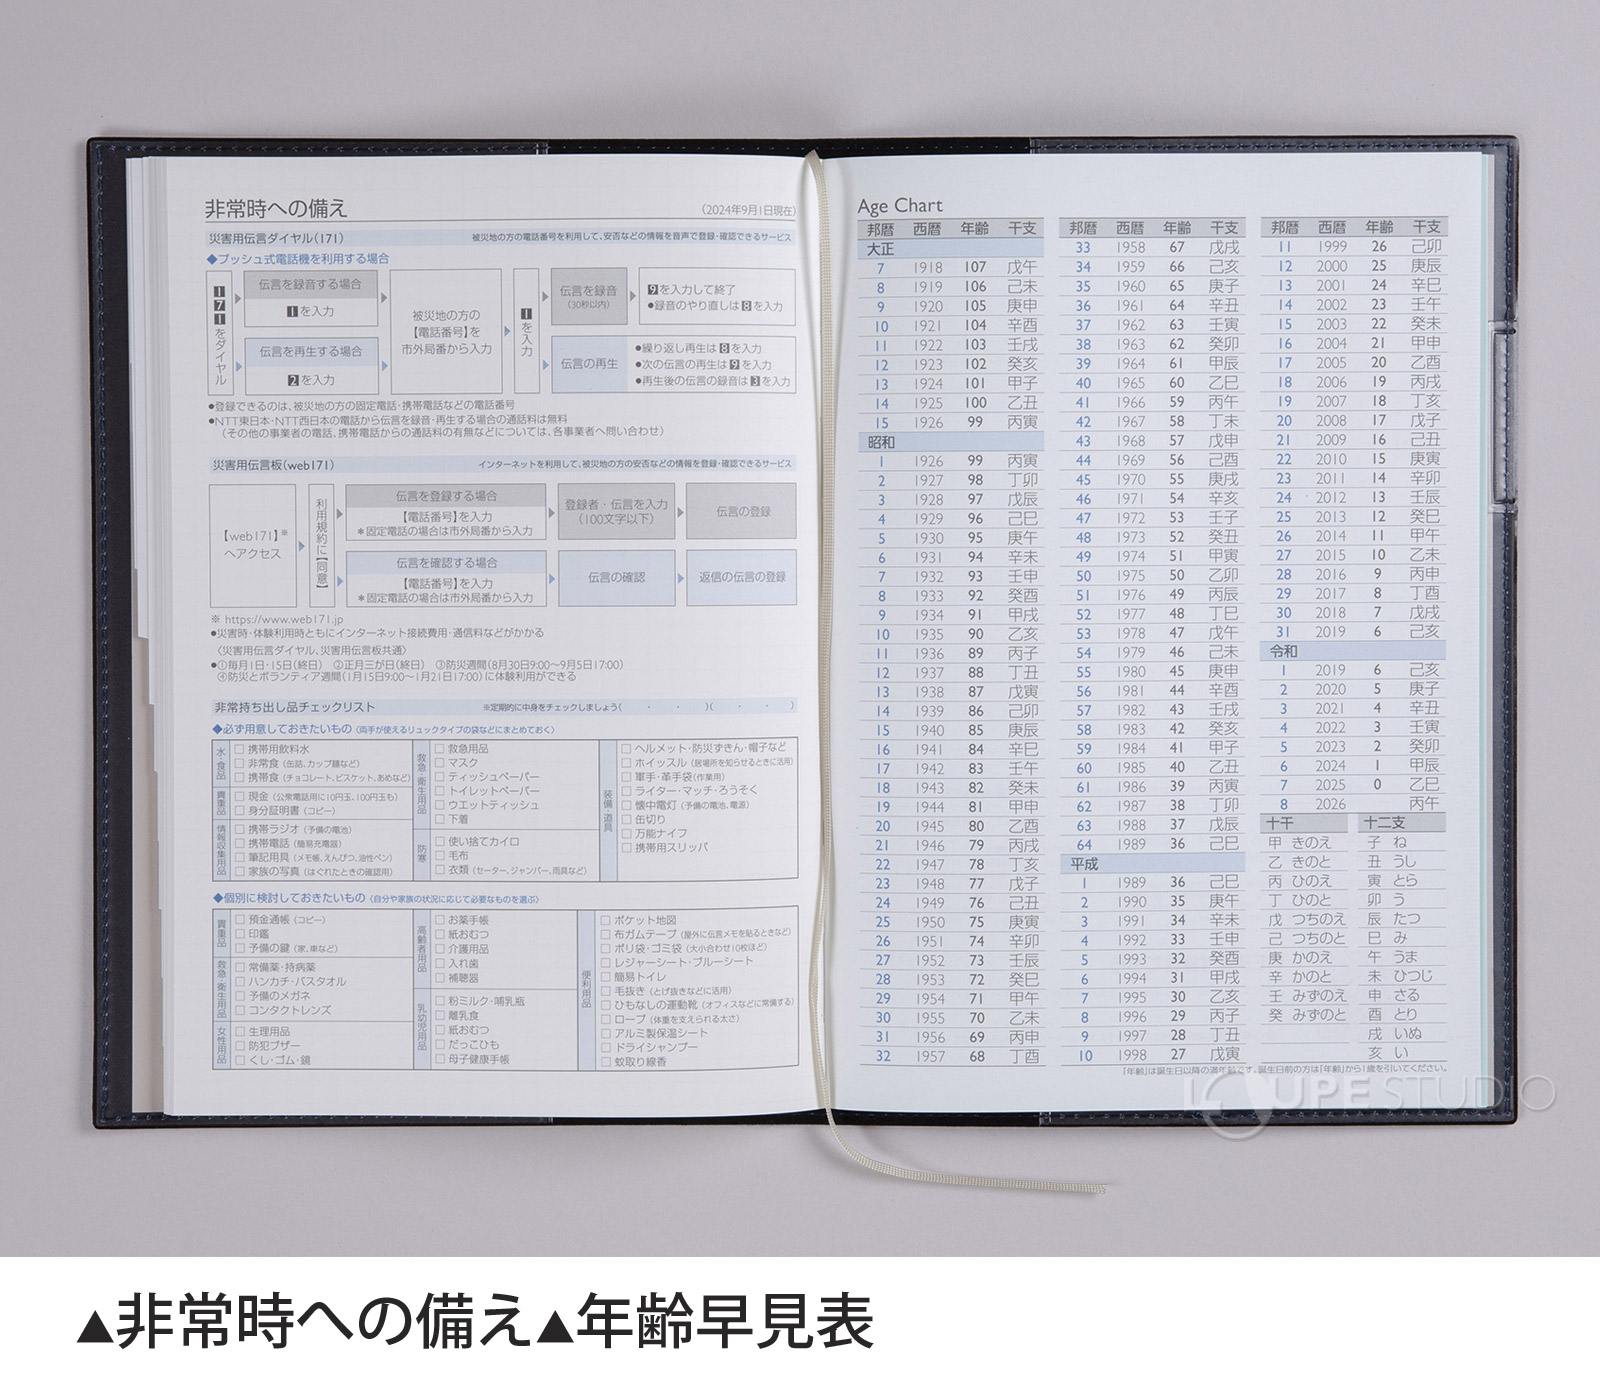 非常時への備え
(2024年9月1日現在)
災害用伝言ダイヤル(171)
被災地の方の電話番号を利用して、安否などの情報を音声で登録・確認できるサービス
◆プッシュ式電話機を利用する場合
171をダイヤル
伝言を録音する場合
1を入力
伝言を再生する場合
2を入力
被災地の方の
【電話番号】を
市外局番から入力
1を入力
伝言を録音
(30秒以内)
9を入力して終了
●録音のやり直しは8を入力
伝言の再生
●繰り返し再生は8を入力
●次の伝言の再生は9を入力
●再生後の伝言の録音は3を入力
●登録できるのは、被災地の方の固定電話・携帯電話などの電話番号
●NTT東日本・NTT西日本の電話から伝言を録音・再生する場合の通話料は無料
(その他の事業者の電話、携帯電話からの通話料の有無などについては、各事業者へ問い合わせ)
災害用伝言板(web171)
インターネットを利用して、被災地の方の安否などの情報を登録・確認できるサービス
【web171】※
へアクセス
利用規約に【同意】
伝言を登録する場合
【電話番号】を入力
＊固定電話の場合は市外局番から入力
登録者・伝言を入力
(100文字以下)
伝言の登録
伝言を確認する場合
【電話番号】を入力
＊固定電話の場合は市外局番から入力
伝言の確認
返信の伝言の登録
※ https://www.web171.jp
●災害時・体験利用時ともにインターネット接続費用・通信料などがかかる
〈災害用伝言ダイヤル、災害用伝言板共通〉
●①毎月1日・15日(終日) ②正月三が日(終日) ③防災週間(8月30日9:00〜9月5日17:00)
④防災とボランティア週間(1月15日9:00〜1月21日17:00)に体験利用ができる
非常持ち出し品チェックリスト
※定期的に中身をチェックしましょう( ・ ・ )( ・ ・ )
◆必ず用意しておきたいもの (両手が使えるリュックタイプの袋などにまとめておく)
水・食品
□ 携帯用飲料水
□ 非常食 (缶詰、カップ麺など)
□ 携帯食 (チョコレート、ビスケット、あめなど)
貴重品
□ 現金 (公衆電話用に10円玉、100円玉も)
□ 身分証明書 (コピー)
情報収集用品
□ 携帯ラジオ (予備の電池)
□ 携帯電話 (簡易充電器)
□ 筆記用具 (メモ帳、えんぴつ、油性ペン)
□ 家族の写真 (はぐれたときの確認用)
救急・衛生用品
□ 救急用品
□ マスク
□ ティッシュペーパー
□ トイレットペーパー
□ ウエットティッシュ
□ 下着
防寒
□ 使い捨てカイロ
□ 毛布
□ 衣類 (セーター、ジャンパー、雨具など)
装備・道具
□ ヘルメット・防災ずきん・帽子など
□ ホイッスル (居場所を知らせるときに活用)
□ 軍手・革手袋 (作業用)
□ ライター・マッチ・ろうそく
□ 懐中電灯 (予備の電池、電源)
□ 缶切り
□ 万能ナイフ
□ 携帯用スリッパ
◆個別に検討しておきたいもの (自分や家族の状況に応じて必要なものを選ぶ)
貴重品
□ 預金通帳 (コピー)
□ 印鑑
□ 予備の鍵 (家、車など)
救急・衛生用品
□ 常備薬・持病薬
□ ハンカチ・バスタオル
□ 予備のメガネ
□ コンタクトレンズ
女性用品
□ 生理用品
□ 防犯ブザー
□ くし・ゴム・鏡
高齢者用品
□ お薬手帳
□ 紙おむつ
□ 介護用品
□ 入れ歯
□ 補聴器
乳幼児用品
□ 粉ミルク・哺乳瓶
□ 離乳食
□ 紙おむつ
□ だっこひも
□ 母子健康手帳
便利用品
□ ポケット地図
□ 布ガムテープ (屋外に伝言メモを貼るときなど)
□ ポリ袋・ゴミ袋 (大小合わせ10枚ほど)
□ レジャーシート・ブルーシート
□ 簡易トイレ
□ 毛抜き (とげ抜きなどに活用)
□ ひもなしの運動靴 (オフィスなどに常備する)
□ ロープ (体重を支えられる太さ)
□ アルミ製保温シート
□ ドライシャンプー
□ 蚊取り線香
Age Chart
邦暦 西暦 年齢 干支
大正
7 1918 107 戊午
8 1919 106 己未
9 1920 105 庚申
10 1921 104 辛酉
11 1922 103 壬戌
12 1923 102 癸亥
13 1924 101 甲子
14 1925 100 乙丑
15 1926 99 丙寅
昭和
1 1926 99 丙寅
2 1927 98 丁卯
3 1928 97 戊辰
4 1929 96 己巳
5 1930 95 庚午
6 1931 94 辛未
7 1932 93 壬申
8 1933 92 癸酉
9 1934 91 甲戌
10 1935 90 乙亥
11 1936 89 丙子
12 1937 88 丁丑
13 1938 87 戊寅
14 1939 86 己卯
15 1940 85 庚辰
16 1941 84 辛巳
17 1942 83 壬午
18 1943 82 癸未
19 1944 81 甲申
20 1945 80 乙酉
21 1946 79 丙戌
22 1947 78 丁亥
23 1948 77 戊子
24 1949 76 己丑
25 1950 75 庚寅
26 1951 74 辛卯
27 1952 73 壬辰
28 1953 72 癸巳
29 1954 71 甲午
30 1955 70 乙未
31 1956 69 丙申
32 1957 68 丁酉
邦暦 西暦 年齢 干支
33 1958 67 戊戌
34 1959 66 己亥
35 1960 65 庚子
36 1961 64 辛丑
37 1962 63 壬寅
38 1963 62 癸卯
39 1964 61 甲辰
40 1965 60 乙巳
41 1966 59 丙午
42 1967 58 丁未
43 1968 57 戊申
44 1969 56 己酉
45 1970 55 庚戌
46 1971 54 辛亥
47 1972 53 壬子
48 1973 52 癸丑
49 1974 51 甲寅
50 1975 50 乙卯
51 1976 49 丙辰
52 1977 48 丁巳
53 1978 47 戊午
54 1979 46 己未
55 1980 45 庚申
56 1981 44 辛酉
57 1982 43 壬戌
58 1983 42 癸亥
59 1984 41 甲子
60 1985 40 乙丑
61 1986 39 丙寅
62 1987 38 丁卯
63 1988 37 戊辰
64 1989 36 己巳
平成
1 1989 36 己巳
2 1990 35 庚午
3 1991 34 辛未
4 1992 33 壬申
5 1993 32 癸酉
6 1994 31 甲戌
7 1995 30 乙亥
8 1996 29 丙子
9 1997 28 丁丑
10 1998 27 戊寅
邦暦 西暦 年齢 干支
11 1999 26 己卯
12 2000 25 庚辰
13 2001 24 辛巳
14 2002 23 壬午
15 2003 22 癸未
16 2004 21 甲申
17 2005 20 乙酉
18 2006 19 丙戌
19 2007 18 丁亥
20 2008 17 戊子
21 2009 16 己丑
22 2010 15 庚寅
23 2011 14 辛卯
24 2012 13 壬辰
25 2013 12 癸巳
26 2014 11 甲午
27 2015 10 乙未
28 2016 9 丙申
29 2017 8 丁酉
30 2018 7 戊戌
31 2019 6 己亥
令和
1 2019 6 己亥
2 2020 5 庚子
3 2021 4 辛丑
4 2022 3 壬寅
5 2023 2 癸卯
6 2024 1 甲辰
7 2025 0 乙巳
8 2026 丙午
十干
甲 きのえ
乙 きのと
丙 ひのえ
丁 ひのと
戊 つちのえ
己 つちのと
庚 かのえ
辛 かのと
壬 みずのえ
癸 みずのと
十二支
子 ね
丑 うし
寅 とら
卯 う
辰 たつ
巳 み
午 うま
未 ひつじ
申 さる
酉 とり
戌 いぬ
亥 い
「年齢」は誕生日以降の満年齢です。誕生日前の方は「年齢」から1歳を引いてください。
LOUPE STUDIO
▲非常時への備え▲年齢早見表